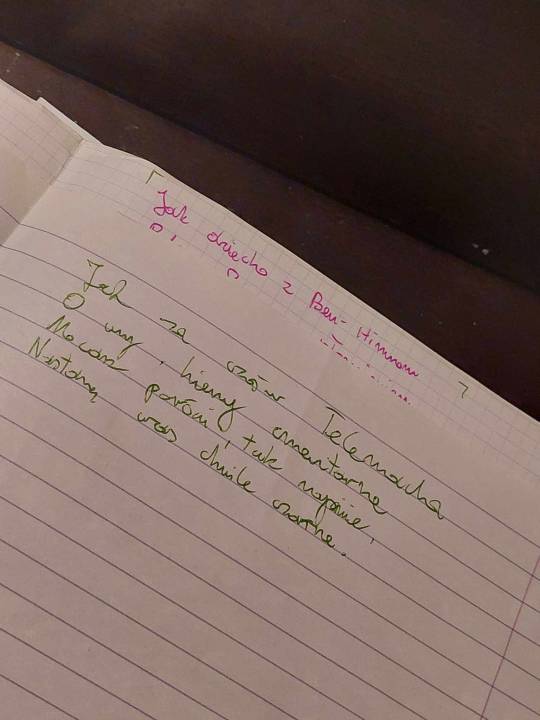 Jak dziecko z Ben-Hinnom
Jak za czasów Telemacha
O wy, hieny cmentarne
Macane paroĺni, tak naprawdę,
Nastaną was chwile czarne.